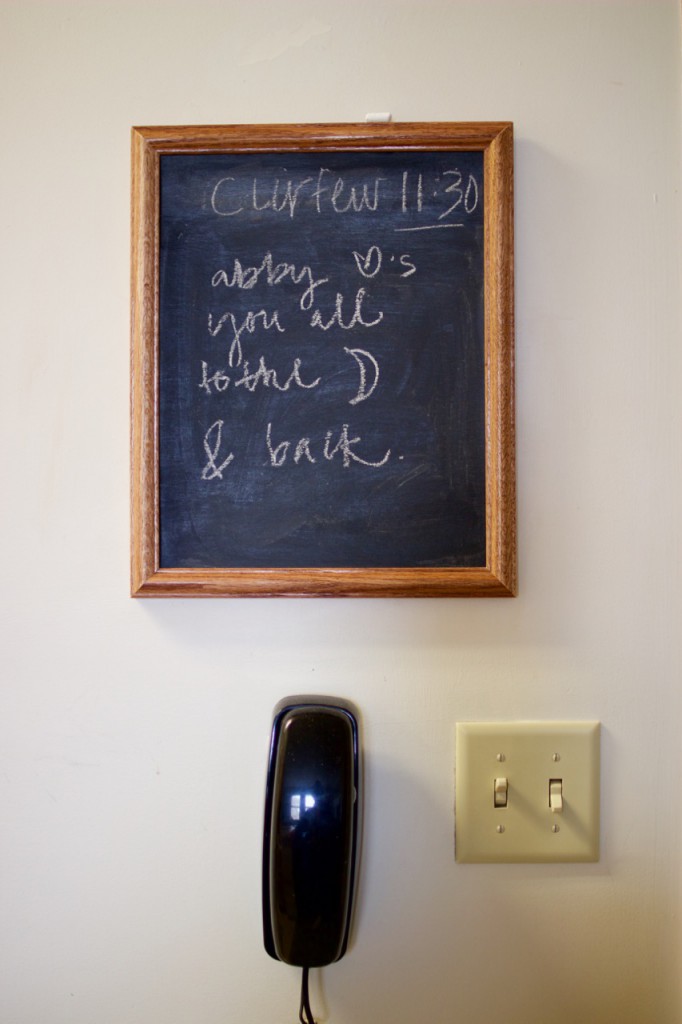 Curfew 11:30
abby ♡'s
you all
to the ☽
& back.